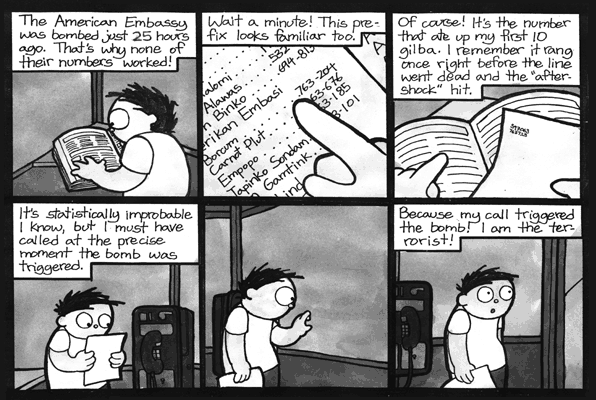 The American Embassy
was bombed just 25 hours
ago. That's why none of
their numbers worked!
Wait a minute! This pre-
fix looks familiar too.
532
694-813
Alawas
Binko
rikan Embasi
763-204
Borcum
63-676
Carnot Plut
3-185
Empopo
3-101
Tapinko Sondam
Gamtink
Lind
Of course! It's the number
that ate up my first 10
gilba. I remember it rang
once right before the line
went dead and the "after-
shock" hit.
It's statistically improbable
I know, but I must have
called at the precise
moment the bomb was
triggered.
Because my call triggered
the bomb! I am the ter-
rorist!